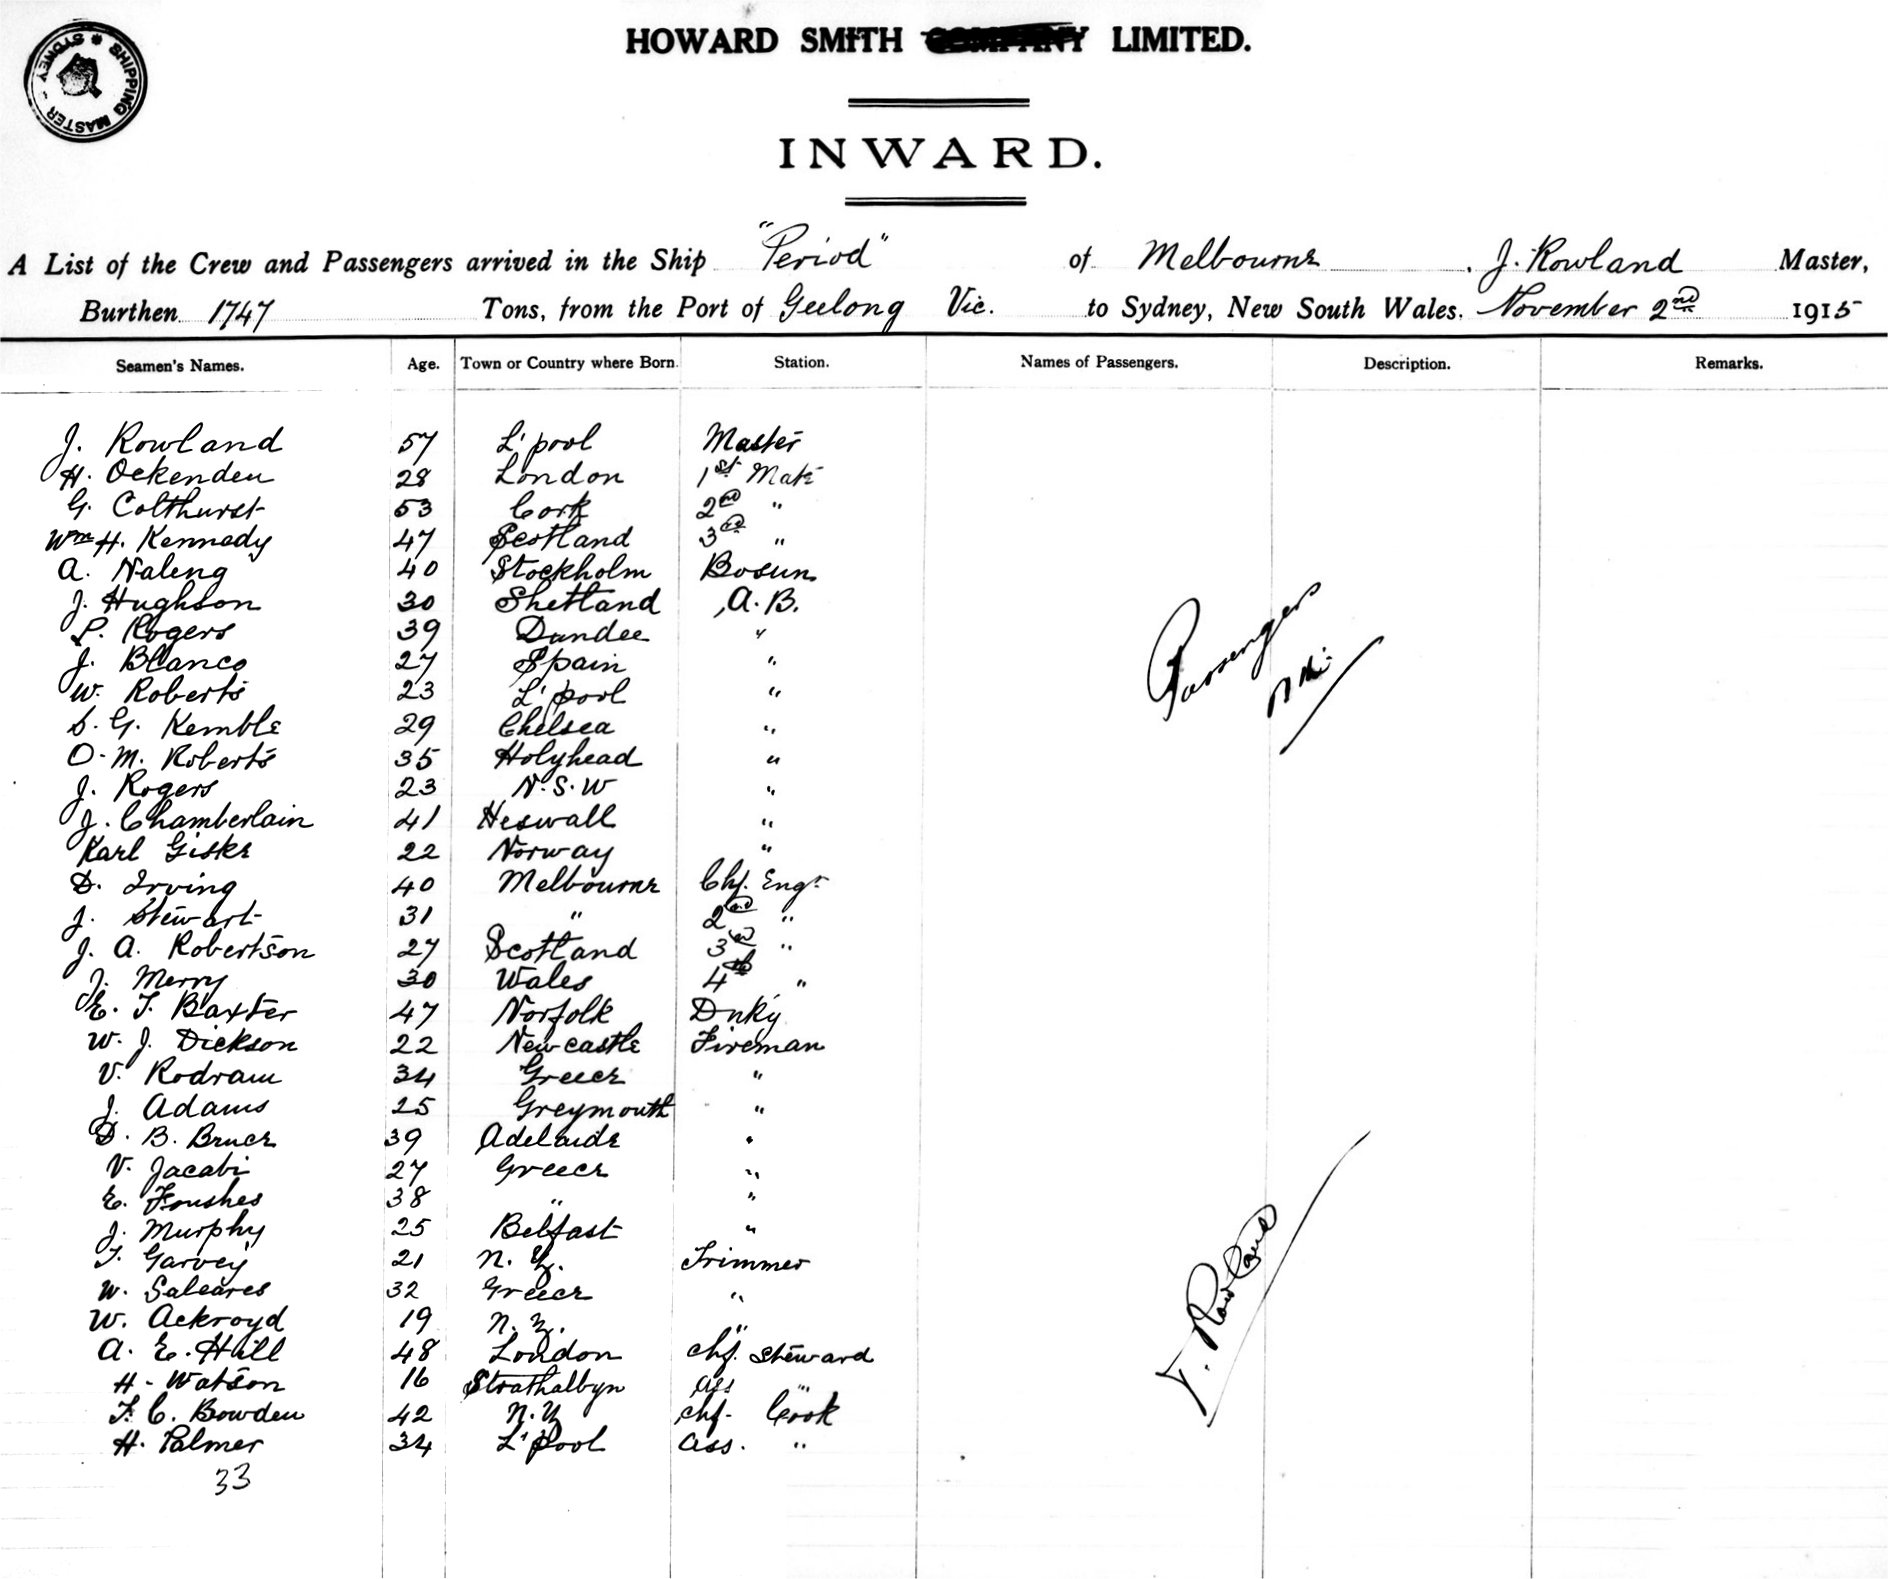 SHIPPING MASTER - SYDNEY
HOWARD SMITH COMPANY LIMITED.
INWARD.
A List of the Crew and Passengers arrived in the Ship "Period" of Melbourne, J. Rowland Master,
Burthen 1747 Tons, from the Port of Geelong Vic. to Sydney, New South Wales. November 2nd 1915
Seamen's Names. Age. Town or Country where Born. Station. Names of Passengers. Description. Remarks.
J. Rowland 57 L'pool Master
H. Ockenden 28 London 1st Mate
G. Colthurst 53 Cork 2nd "
Wm H. Kennedy 47 Scotland 3rd "
A. Naleng 40 Stockholm Bosun
J. Hughson 30 Shetland A.B.
P. Rogers 39 Dundee "
J. Blanco 27 Spain "
W. Roberts 23 L'pool "
S. G. Kemble 29 Chelsea "
O. M. Roberts 35 Holyhead "
J. Rogers 23 N.S.W "
J. Chamberlain 41 Heswall "
Karl Giske 22 Norway "
D. Irving 40 Melbourne Chf. Engr
J. Stewart 31 " 2nd "
J. A. Robertson 27 Scotland 3rd "
J. Merry 30 Wales 4th "
E. T. Baxter 47 Norfolk Dnky
W. J. Dickson 22 Newcastle Fireman
V. Rodram 34 Greece "
J. Adams 25 Greymouth "
D. B. Bruce 39 Adelaide "
V. Jacabi 27 Greece "
E. Foushes 38 " "
J. Murphy 25 Belfast "
T. Garvey 21 N.Z. Trimmer
W. Saleares 32 Greece "
W. Ackroyd 19 N.Z. "
A. E. Hill 48 London Chf. Steward
H. Watson 16 Strathalbyn Ass "
F. C. Bowden 42 N.Z Chf. Cook
H. Palmer 34 L'pool Ass. "
33
Passengers
Nil
J. Rowland